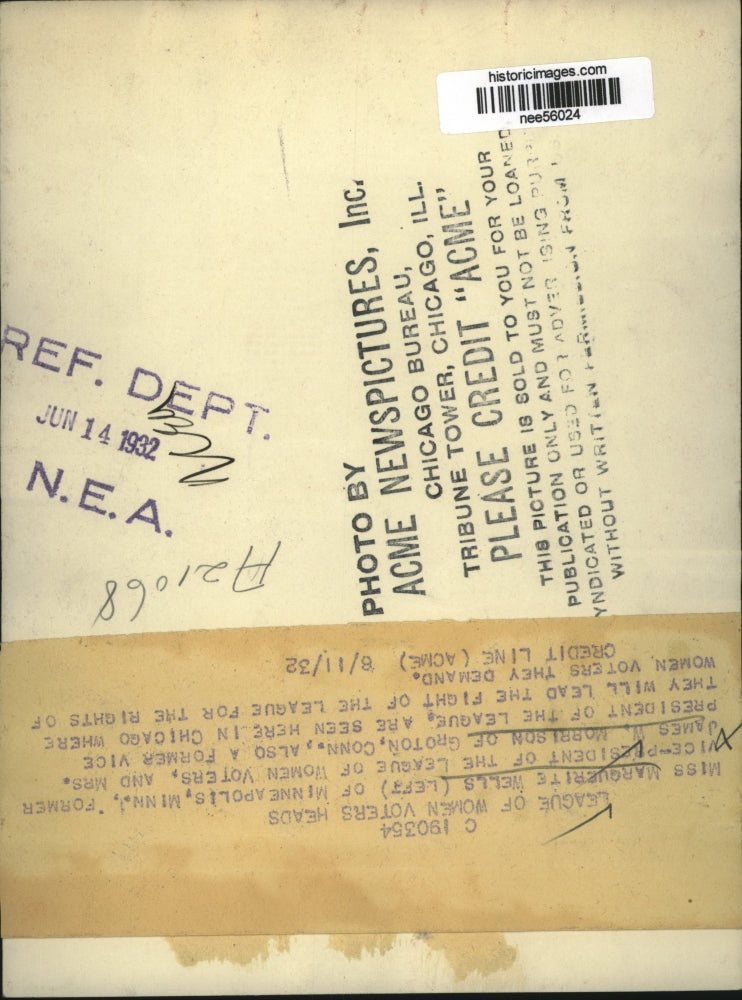 historicimages.com
nee56024
PHOTO BY
ACME NEWSPICTURES, Inc.
CHICAGO BUREAU,
TRIBUNE TOWER, CHICAGO, ILL.
PLEASE CREDIT "ACME"
THIS PICTURE IS SOLD TO YOU FOR YOUR
PUBLICATION ONLY AND MUST NOT BE LOANED
YNDICATED OR USED FOR ADVERTISING PURP
WITHOUT WRITTEN PERMISSION FROM US
REF. DEPT.
JUN 14 1932
N.E.A.
A21068
C 190354
LEAGUE OF WOMEN VOTERS HEADS
MISS MARGUERITE WELLS (LEFT) OF MINNEAPOLIS, MINN., FORMER
VICE-PRESIDENT OF THE LEAGUE OF WOMEN VOTERS, AND MRS.
JAMES W. MORRISON OF GROTON, CONN., ALSO A FORMER VICE
PRESIDENT OF THE LEAGUE, ARE SEEN HERE IN CHICAGO WHERE
THEY WILL LEAD THE FIGHT OF THE LEAGUE FOR THE RIGHTS OF
WOMEN VOTERS THEY DEMAND.
CREDIT LINE (ACME) 6/11/32